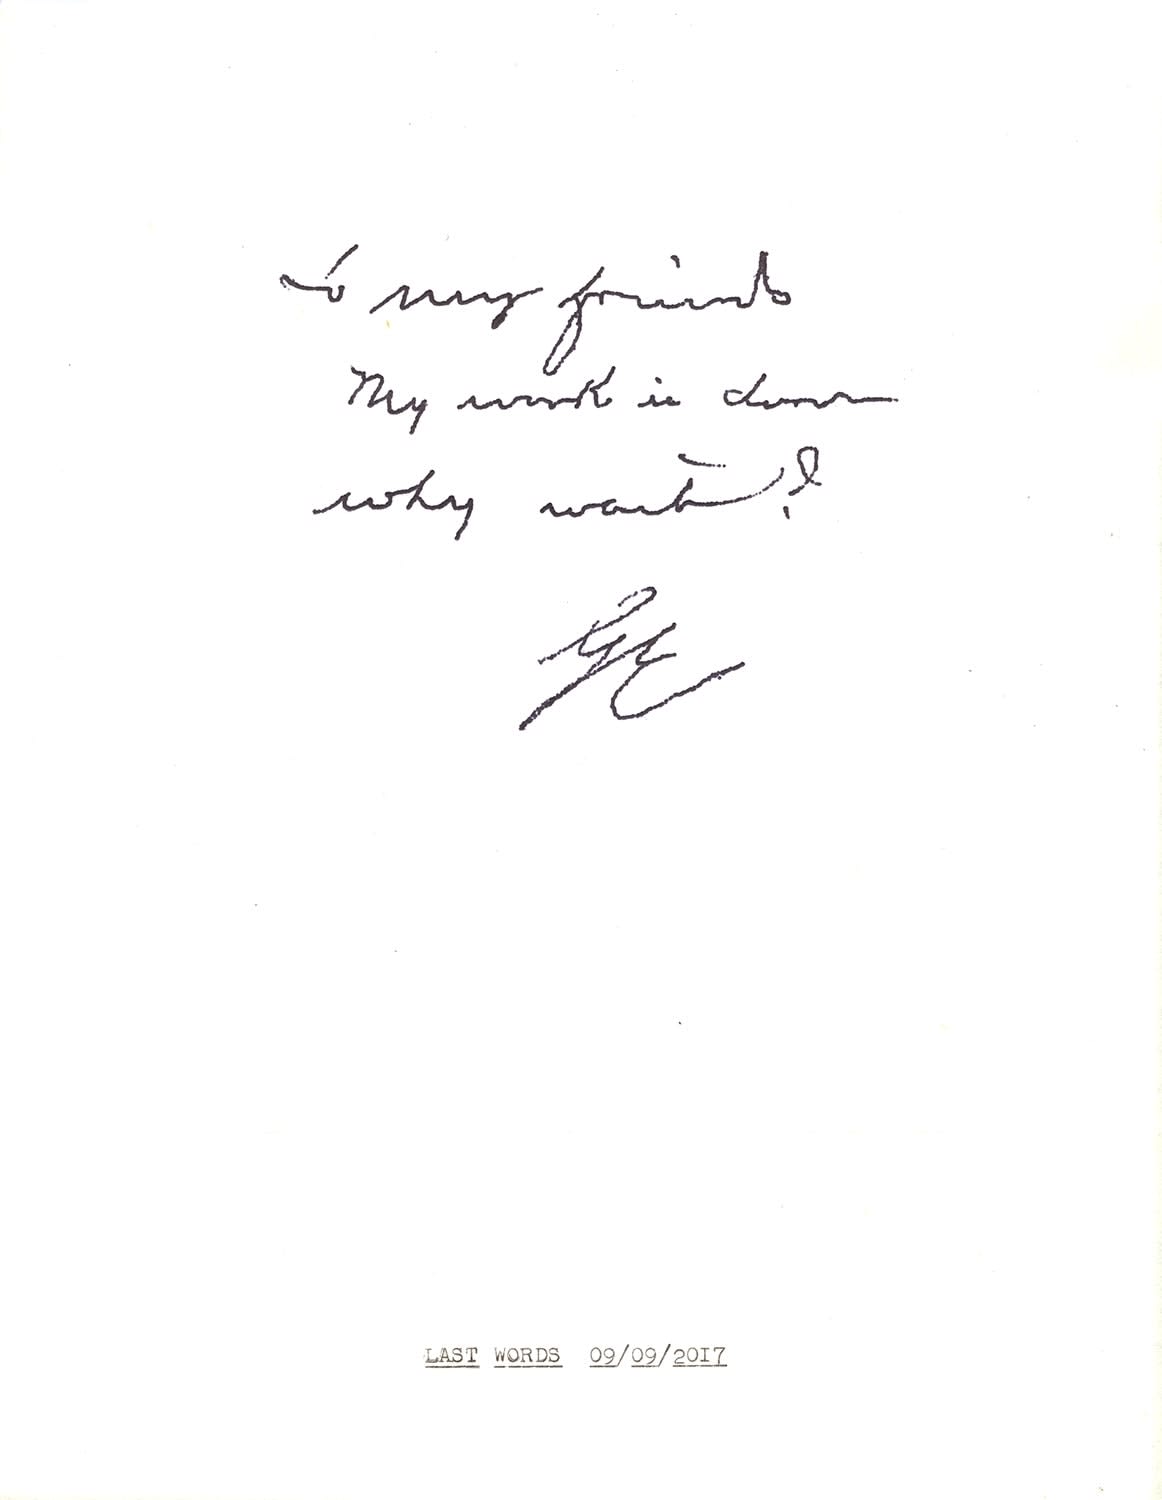 to my friends
My work is done
why wait?
GE
LAST WORDS 09/09/2017